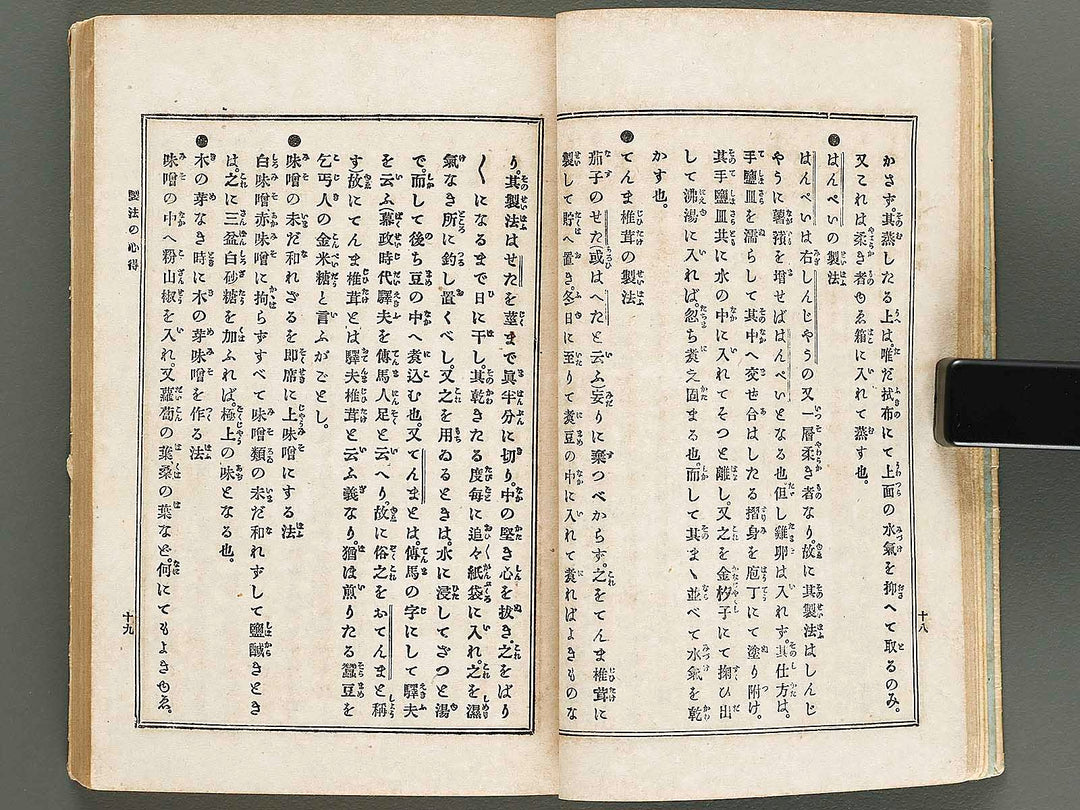 かさす。其蒸したる上は。唯だ拭布にて上面の水氣を抑へて取るのみ。
又これは柔き者ゆゑ箱に入れて蒸す也。
●はんぺいの製法
はんぺいは右しんじやうの又一層柔き者なり。故に其製法はしんじ
やうに薯蕷を增せばはんぺいとなる也但し雞卵は入れず。其仕方は。
手鹽皿を濡らして其中へ交せ合はしたる摺身を庖丁にて塗り附け。
其手鹽皿共に水の中に入れてそつと離し。又之を金杓子にて掬ひ出
して沸湯に入れば。忽ち煑え固まる也。而して其まゝ並べて水氣を乾
かす也。
●てんま椎茸の製法
茄子のせた(或はへたと云ふ)妄りに棄つべからす。之をてんま椎茸に
製して貯へ置き。冬日に至りて煑豆の中に入れて煑ればよきものな
十八
り。其製法はせたを莖まで眞半分に切り。中の堅き心を拔き。之をばり
〱になるまで日に干し。其乾きたる度每に追々紙袋に入れ。之を濕
氣なき所に釣し置くべし。又之を用ゐるときは。水に浸してざつと湯
で。而して後ち豆の中へ煑込む也。又てんまとは。傳馬の字にして驛夫
を云ふ(幕政時代驛夫を傳馬人足と云へり。故に俗之をおてんまと稱
す)故にてんま椎茸とは驛夫椎茸と云ふ義なり。猶ほ煎りたる蠶豆を
乞丐人の金米糖と言ふがごとし。
●味噌の未だ和れざるを即席に上味噌にする法
白味噌赤味噌に拘らずすべて味噌類の未だ和れずして鹽鹹きとき
は。之に三盆白砂糖を加ふれば。極上の味となる也。
●木の芽なき時に木の芽味噌を作る法
味噌の中へ粉山椒を入れ。又蘿蔔の葉。桑の葉など。何にてもよきゆゑ。
製法の心得
十九